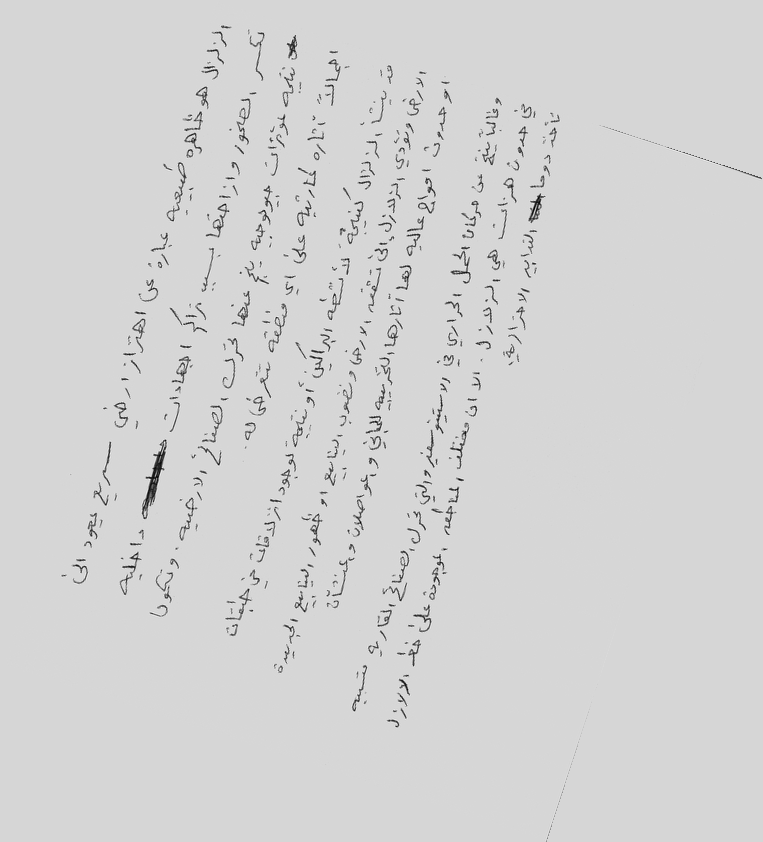 الزلزال هو ظاهرة طبيعية عبارة عن اهتزاز ارضي سريع يعود الى
تكسر الصخور وازاحتها بسبب تراكم اجهادات داخليه
نتيجة لمؤثرات جيولوجيه ينجم عنها تحرك الصفائح الارضيه. وتكون
اجمالاً آثاره كارثيه على اي منطقه تتعرض له.
قد ينشأ الزلزال كنتيجة لأنشطه البراكين أو نتيجة لوجود انزلاقات في طبقات
الارض وتؤدي الزلازل الى تشقق الارض ونضوب الينابيع او ظهور الينابيع الجديدة
او حدوث امواج عاليه لها آثارها التخريبيه للمباني والمواصلات والمنشآت
وغالباً ينتج عن حركات الحمل الحراري في الاستينوسفير والتي تحرك الصفائح القاريه متسببه
في حدوث هزات هي الزلازل. الا ان مختلف المناطق الموجودة على خط الازلازل
تأخذ دوما التدابير الاحترازية.